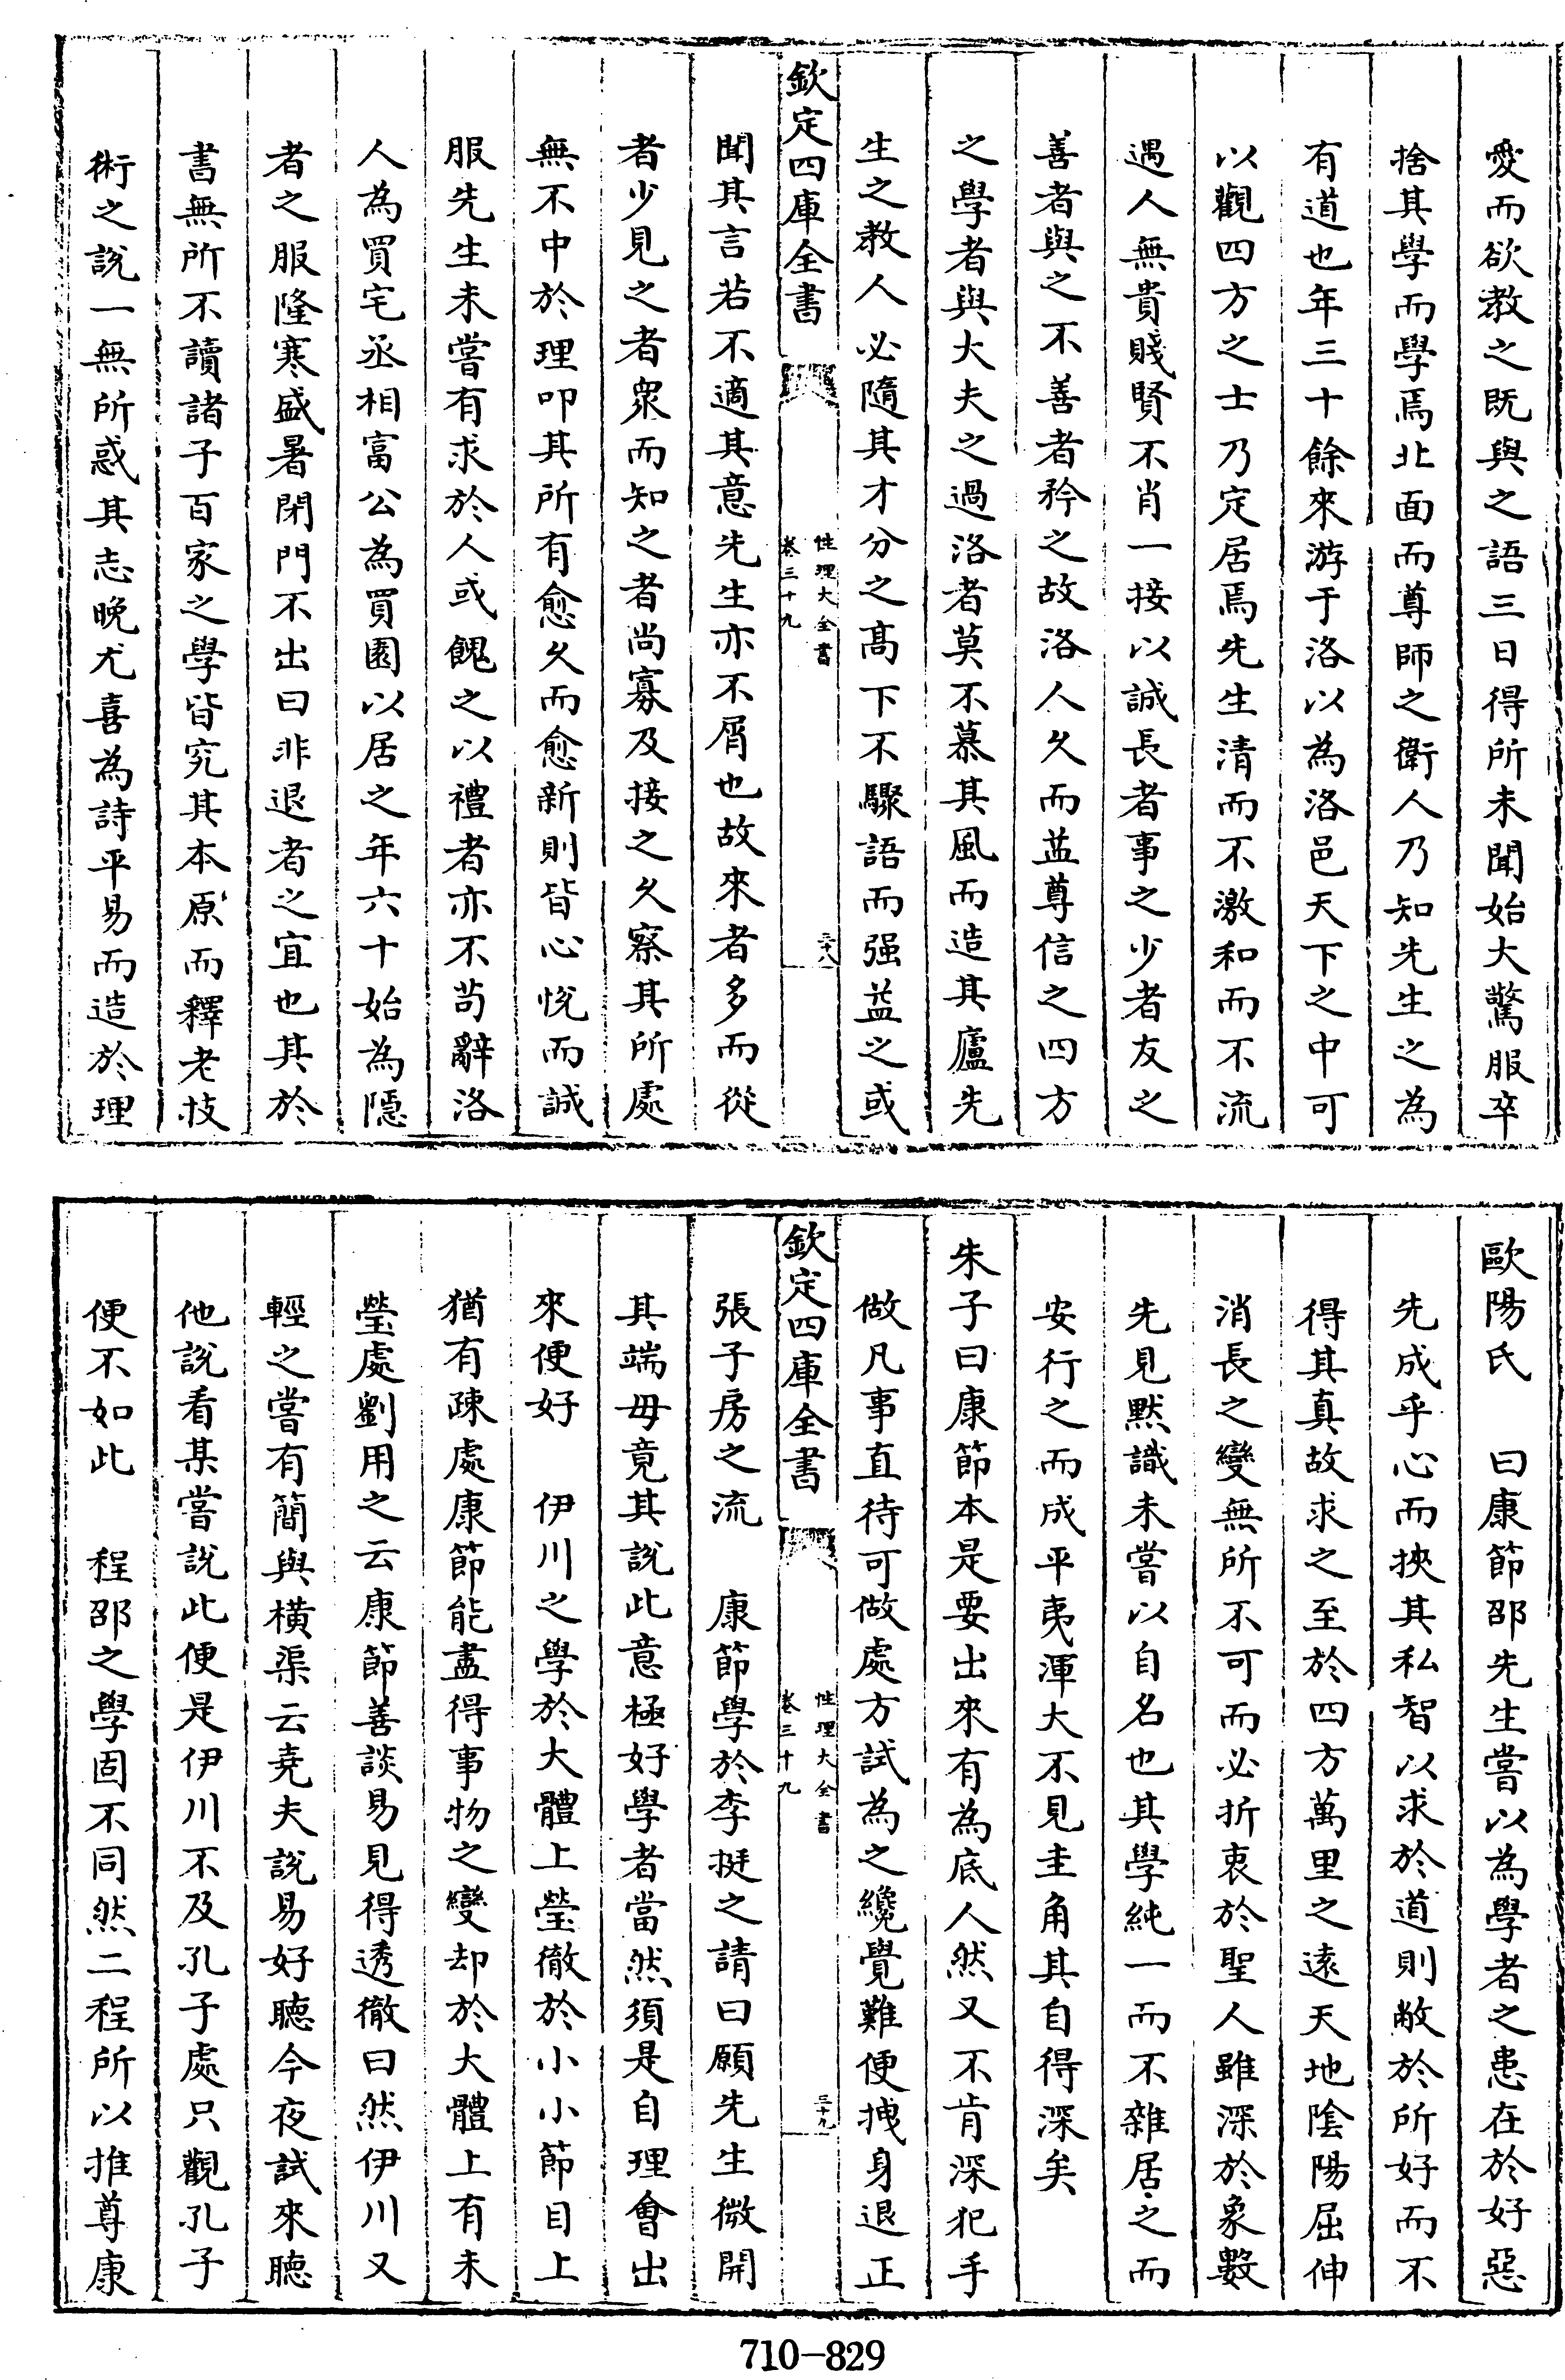 愛而欲教之既與之語三日得所未聞始大驚服卒
捨其學而學焉北面而尊師之衛人乃知先生之為
有道也年三十餘來游于洛以為洛邑天下之中可
以觀四方之士乃定居焉先生清而不激和而不流
遇人無貴賤賢不肖一接以誠長者事之少者友之
善者與之不善者矜之故洛人久而益尊信之四方
之學者與大夫之過洛者莫不慕其風而造其廬先
生之教人必隨其才分之高下不驟語而强益之或
欽定四庫全書
性理大全書
卷三十九
三十八
聞其言若不適其意先生亦不屑也故來者多而從
者少見之者衆而知之者尚寡及接之久察其所處
無不中於理叩其所有愈久而愈新則皆心悅而誠
服先生未嘗有求於人或餽之以禮者亦不茍辭洛
人為買宅丞相富公為買園以居之年六十始為隱
者之服隆寒盛暑閉門不出曰非退者之宜也其於
書無所不讀諸子百家之學皆究其本原而釋老技
術之說一無所惑其志晚尤喜為詩平易而造於理
歐陽氏　曰康節邵先生嘗以為學者之患在於好惡
先成乎心而挾其私智以求於道則敝於所好而不
得其真故求之至於四方萬里之遠天地陰陽屈伸
消長之變無所不可而必折衷於聖人雖深於象數
先見默識未嘗以自名也其學純一而不雜居之而
安行之而成平夷渾大不見圭角其自得深矣
朱子曰康節本是要出來有為底人然又不肯深犯手
做凡事直待可做處方試為之纔覺難便拽身退正
欽定四庫全書
性理大全書
卷三十九
三十九
張子房之流　康節學於李挺之請曰願先生微開
其端毋竟其說此意極好學者當然須是自理會出
來便好　伊川之學於大體上瑩徹於小小節目上
猶有疎處康節能盡得事物之變却於大體上有未
瑩處劉用之云康節善談易見得透徹曰然伊川又
輕之嘗有簡與橫渠云堯夫說易好聽今夜試來聽
他說看某嘗說此便是伊川不及孔子處只觀孔子
便不如此　程邵之學固不同然二程所以推尊康
710-829